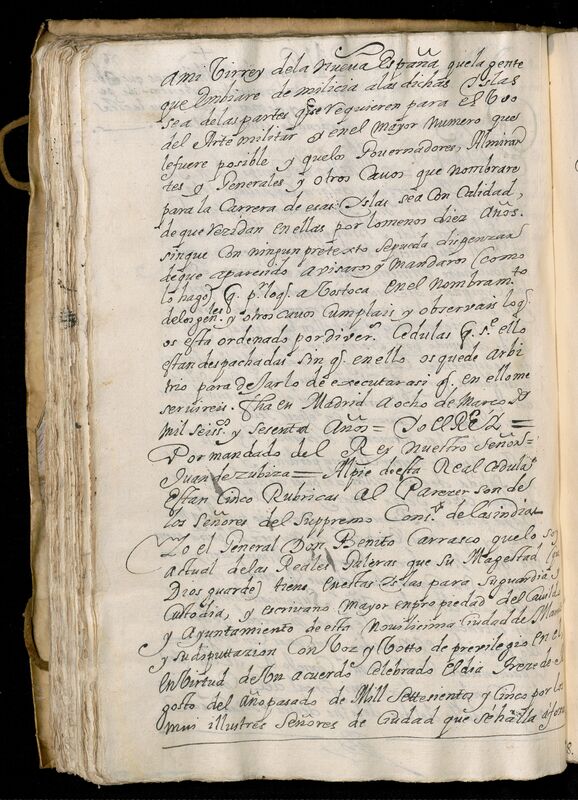 a mi Virrey de la Nueva España que la gente
que Embiare de milicia a las dichas Yslas
sea de las partes qᵉ se requieren para el Uso
del Arte militar y en el mayor numero que se
le fuere posible y que los Governadores, Almiran
tes y Generales y otros Cavos que nombrare
para la Carrera de esas Yslas sea con Calidad,
de que rezidan en ellas por lo menos diez Años.
sin que con ningun pretexto se pueda dispenzar
de que a parecido avisaros y mandaros (como
lo hago) q. pʳ lo q. a Vos toca. en el Nombramᵗᵒ
de los genˡᵉˢ y otros cavos cumplais, y observais lo q.
os esta ordenado por diverˢ Cedulas q. sᵉ ello
estan despachadas sin q. en ello os quede arbi
trio para dejarlo de executar asi q. en ello me
servireis. Fha en Madrid a ocho de Março de
mil Seisˢ y Sesenta Años = Yo el REY =
Por mandado del Rey nuestro Señor =
Juan de zubiza = Al pie de esta Real cedula
Estan Cinco Rubricas Al Parezer son de
los Señores del Suppremo Consº de las indias
Yo el General Don Benito Carrasco que lo soy
actual de las Reales Galeras que Su Magestad (que
Dios guarde) tiene en estas Yslas para Su guardia y
Custodia, y escrivano Mayor en propiedad del Cavildo
y Ayuntamiento de esta Novilicima Ciudad de Manila
y Su diputtazion Con Voz y Votto de previlegio en el
En Virtud de Un acuerdo Celebrado El dia treze de A
gosto del año pasado de Mill Settesientos y Cinco por los
mui illustres Señores de Ciudad que se halla a fora